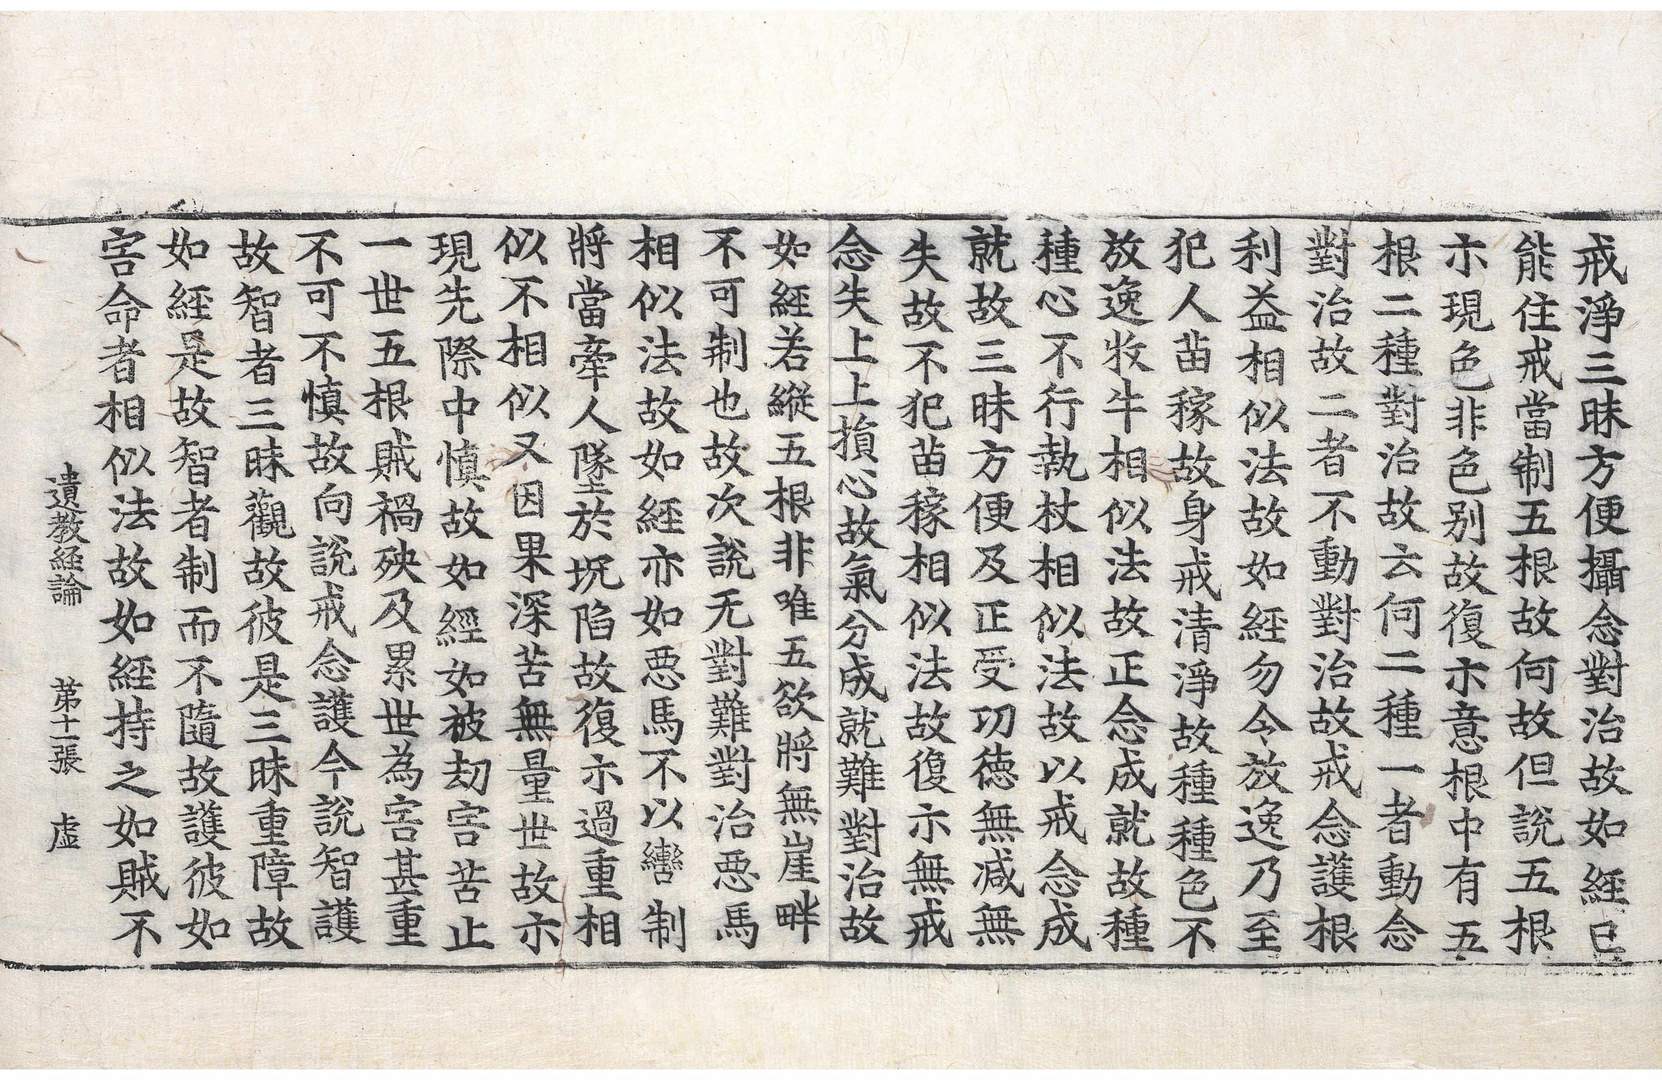 戒淨三昧方便攝念對治故如經已
能住戒當制五根故何故但說五根
示現色非色別故復示意根中有五
根二種對治故云何二種一者動念
對治故二者不動對治故戒念護根
利益相似法故如經勿令放逸乃至
犯人苗稼故身戒清淨故種種色不
放逸牧牛相似法故正念成就故種
種心不行執杖相似法故以戒念成
就故三昧方便及正受功德無減無
失故不犯苗稼相似法故復示無戒
念失上上損心故氣分成就難對治故
如經若縱五根非唯五欲將無崖畔
不可制也故次說无對難對治惡馬
相似法故如經亦如惡馬不以轡制
將當牽人墜於坑陷故復示過重相
似不相似又因果深苦無量世故示
現先際中慎故如經如被劫害苦止
一世五根賊禍殃及累世為害甚重
不可不慎故向說戒念護今說智護
故智者三昧觀故彼是三昧重障故
如經是故智者制而不隨故護彼如
害命者相似法故如經持之如賊不
遺教経論 第十一張 虛